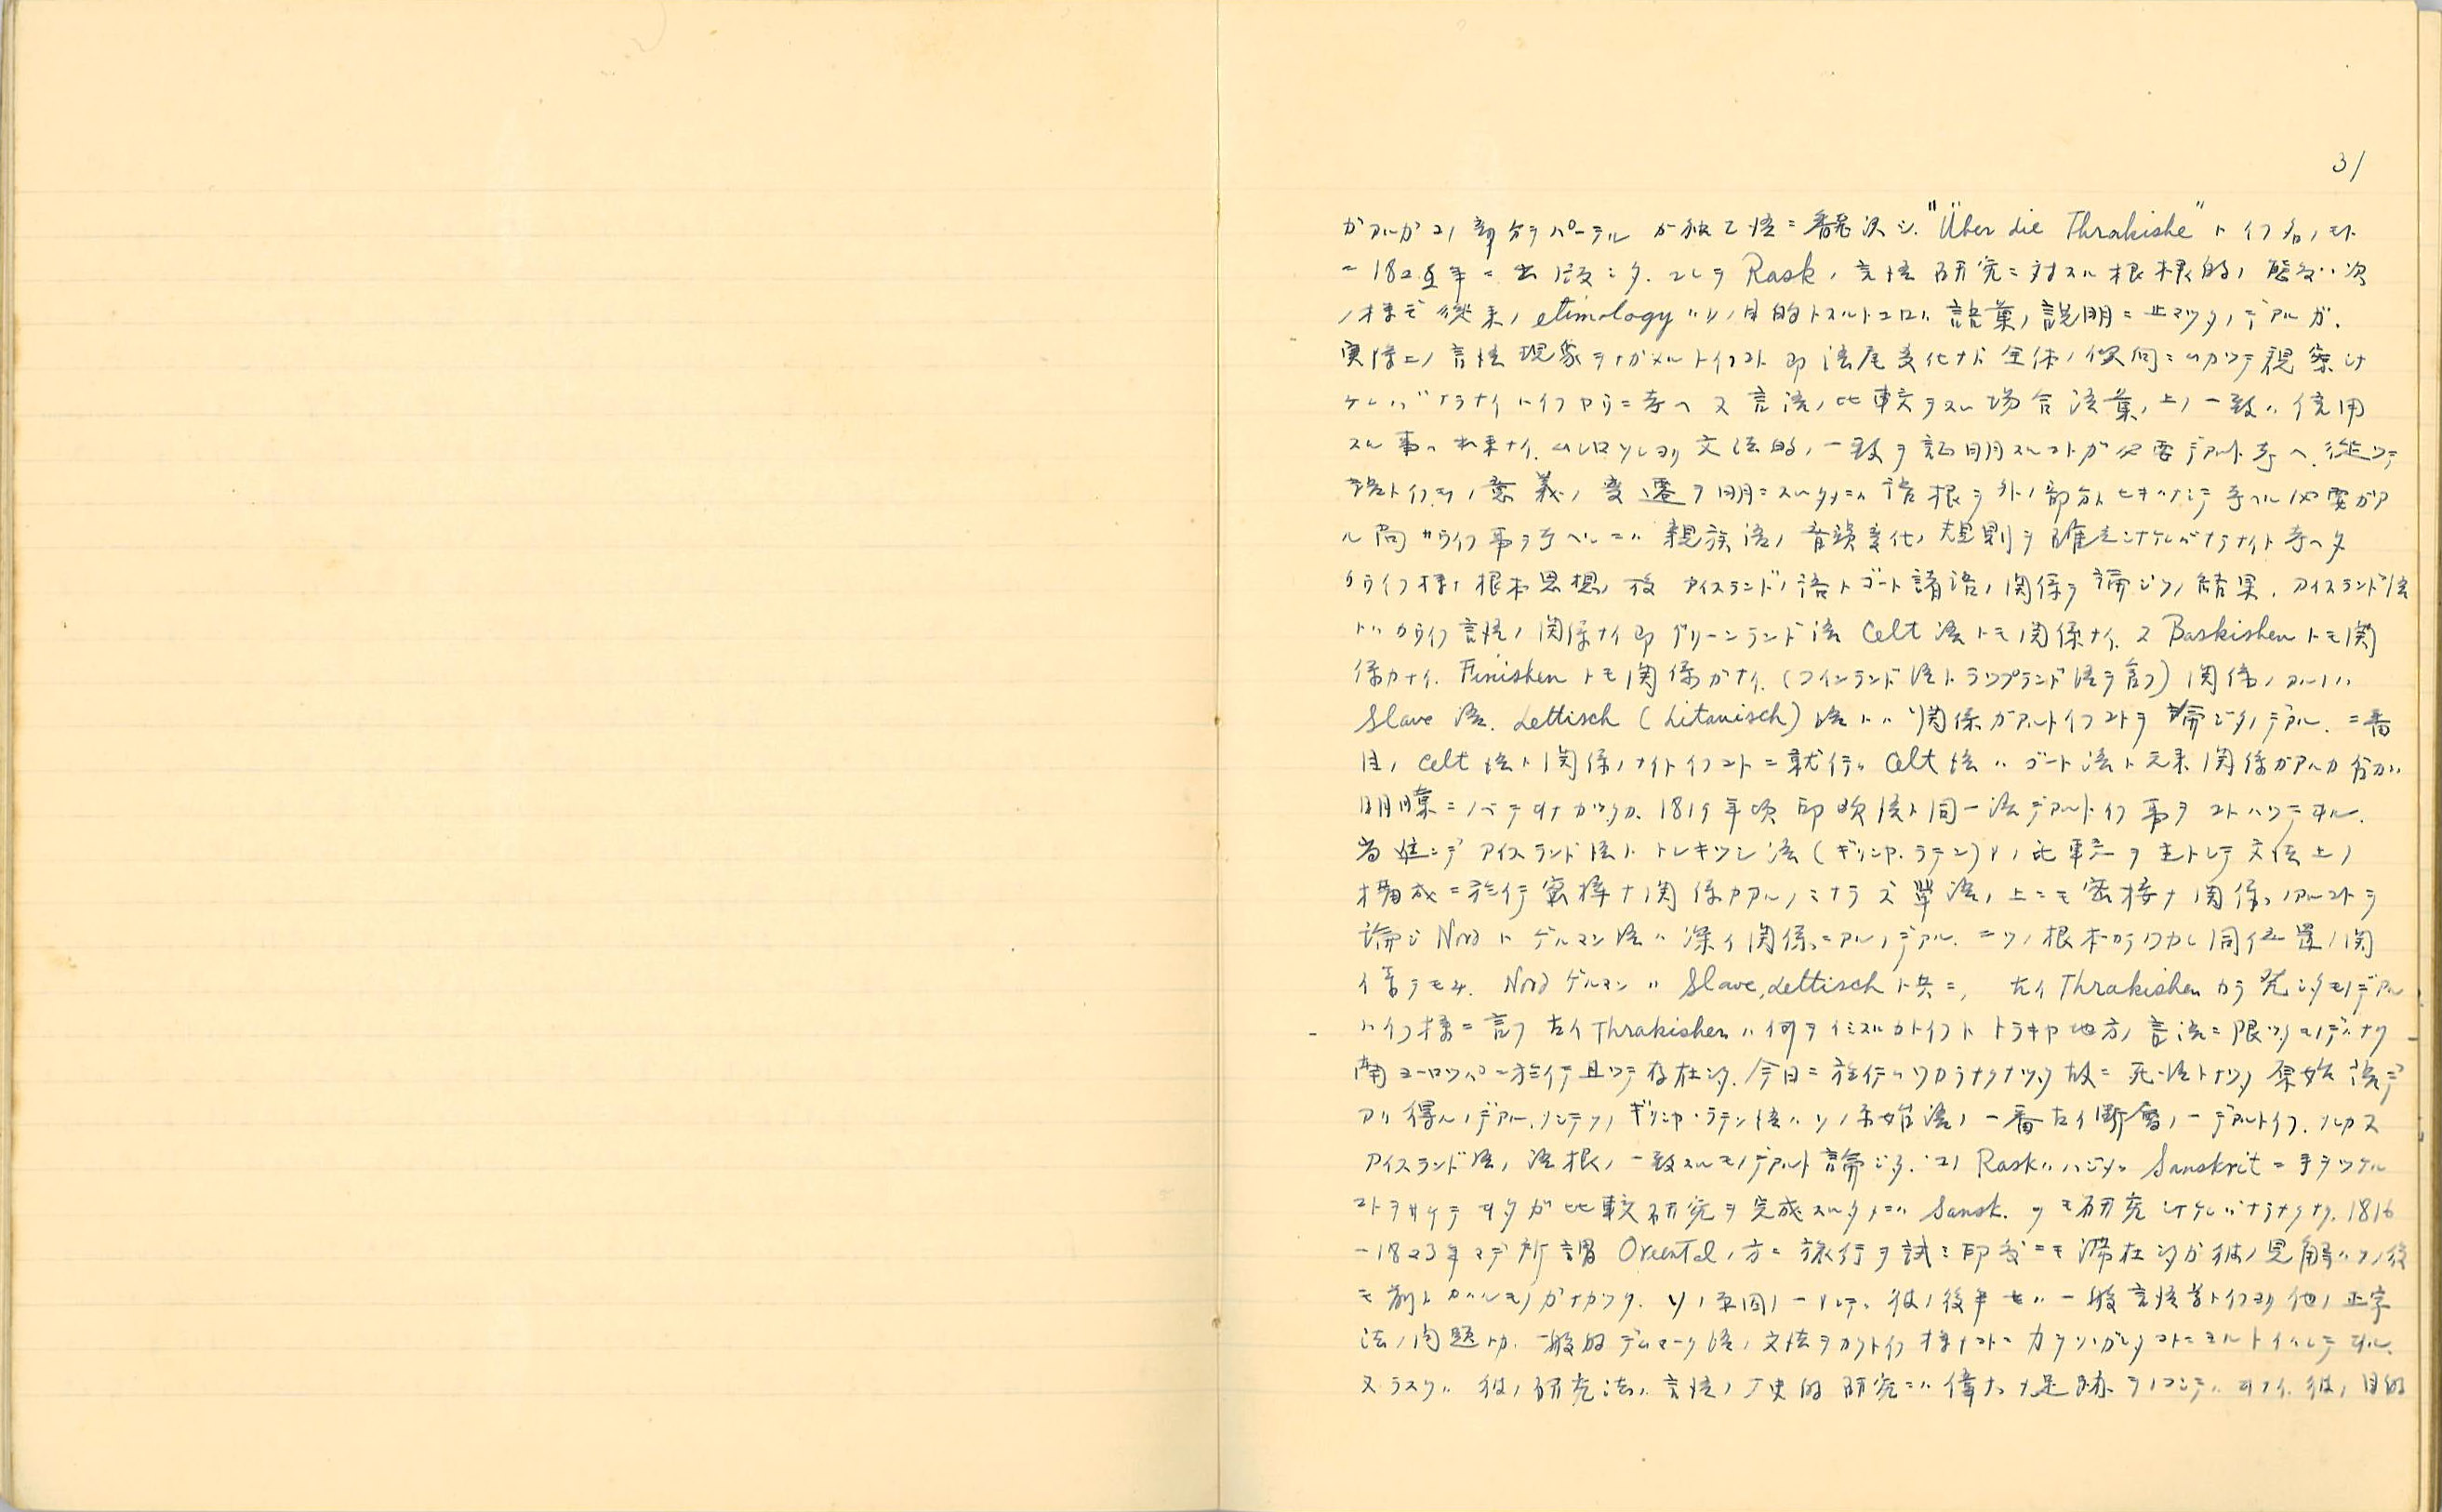 31
ガアルガコノ部分ヲパーテルガ独乙語ニ飜訳シ、"Über die Thrakishe"トイフ名ノモト
ニ1822年ニ出版シタ.コレヲRaskノ言語研究ニ対スル根本的ノ態度ハ次
ノ様デ従来ノetimologyハソノ目的トスルトコロハ語彙ノ説明ニ止マツタノデアルガ、
実際上ノ言語現象ヲナガメルトイフコト即語尾変化ナド全体ノ傾向ニムカツテ視察シナ
ケレバナラナイトイフヤウニ考ヘ又言語ノ比較ヲスル場合語彙ノ上ノ一致ハ信用
スル事ハ出来ナイ.ムシロソレヨリ文法的ノ一致ヲ証明スルコトガ必要デアルト考ヘ.従ツテ
語トイフモノノ意義ノ変遷ヲ明ニスルタメニハ語根ヲ外ノ部分トヒキハナシテ考ヘル必要ガア
ル カウイフ事ヲ考ヘルニハ親族語ノ音韻変化ノ規則ヲ確立シナケレバナラナイト考ヘタ
カウイフ様ナ根本思想ノ後アイスランドノ語トゴート諸語ノ関係ヲ論ジタノ結果.アイスランド語
トハカウイフ言語ノ関係ナイ即グリーンランド語Celt語トモ関係ナイ.又Baskishenトモ関
係ガナイ.Finishenトモ関係ガナイ.(フインランド語トラツプランド語ヲ言フ)関係ノアルノハ
Slave語.Lettisch(Litauisch)語トハ関係ガアルトイフコトヲ論ジタノデアル.二番
目ノCelt語ト関係ノナイトイフコトニ就イテハCelt語ハゴート語ト元来関係ガアルカ否カハ
明瞭ニノベテヰナカツタガ、1819年頃印欧語ト同一語デアルトイフ事ヲコトハツテヰル.
尚進ンデアイスランド語トトレキツシ語(ギリシヤ.ラテン)トノ比較ヲ主トシテ文法上ノ
構成ニ於イテ密接ナ関係ガアルノミナラズ単語ノ上ニモ密接ナ関係ノアルコトヲ
論ジNordトゲルマン語ハ深イ関係ニアルノデアル.二ツノ根本カラワカレ同位置ノ関
係ヲモチ.NordゲルマンハSlave,Lettischト共ニ,古イThrakishenカラ発シタモノデアル
トイフ様ニ言フ 古イThrakishenハ何ヲイミスルカトイフトトラキヤ地方ノ言語ニ限ツタモノデハナク
南ヨーロツパニ於イテ且ツテ存在シタ.今日ニ於イテハワカラナクナツタ故ニ死語トナツタ原始語デ
アリ得ルノデアル.ソシテソノギリシヤ・ラテン語ハソノ原始語ノ一番古イ断層ノ一デアルトイフ.ソレカラ又
アイスランド語ノ語根ノ一致スルモノデアルト論ジタ.コノRaskハハジメハSanskritニ手ヲツケル
コトヲサケテヰタガ比較研究ヲ完成スルタメニハSansk.ヲモ研究シナケレバナラナクナリ.1816
-1823年マデ所謂Orientalノ方ニ旅行ヲ試ミ印度ニモ滞在シタガ彼ノ見解ハソノ後
モ前トカハルモノガナカツタ.ソノ原因ノ一トシテハ彼ノ後半世ハ一般言語学トイフヨリ他ノ正字
法ノ問題トカ.一般的デンマーク語ノ文法ヲカクトイフ様ナコトニ力ヲソソガレタコトニヨルトイハレテヰル.
又ラスクハ彼ノ研究法ハ言語ノ歴史的研究ニハ偉大ナ足跡ヲノコシテハヰナイ.彼ノ目的